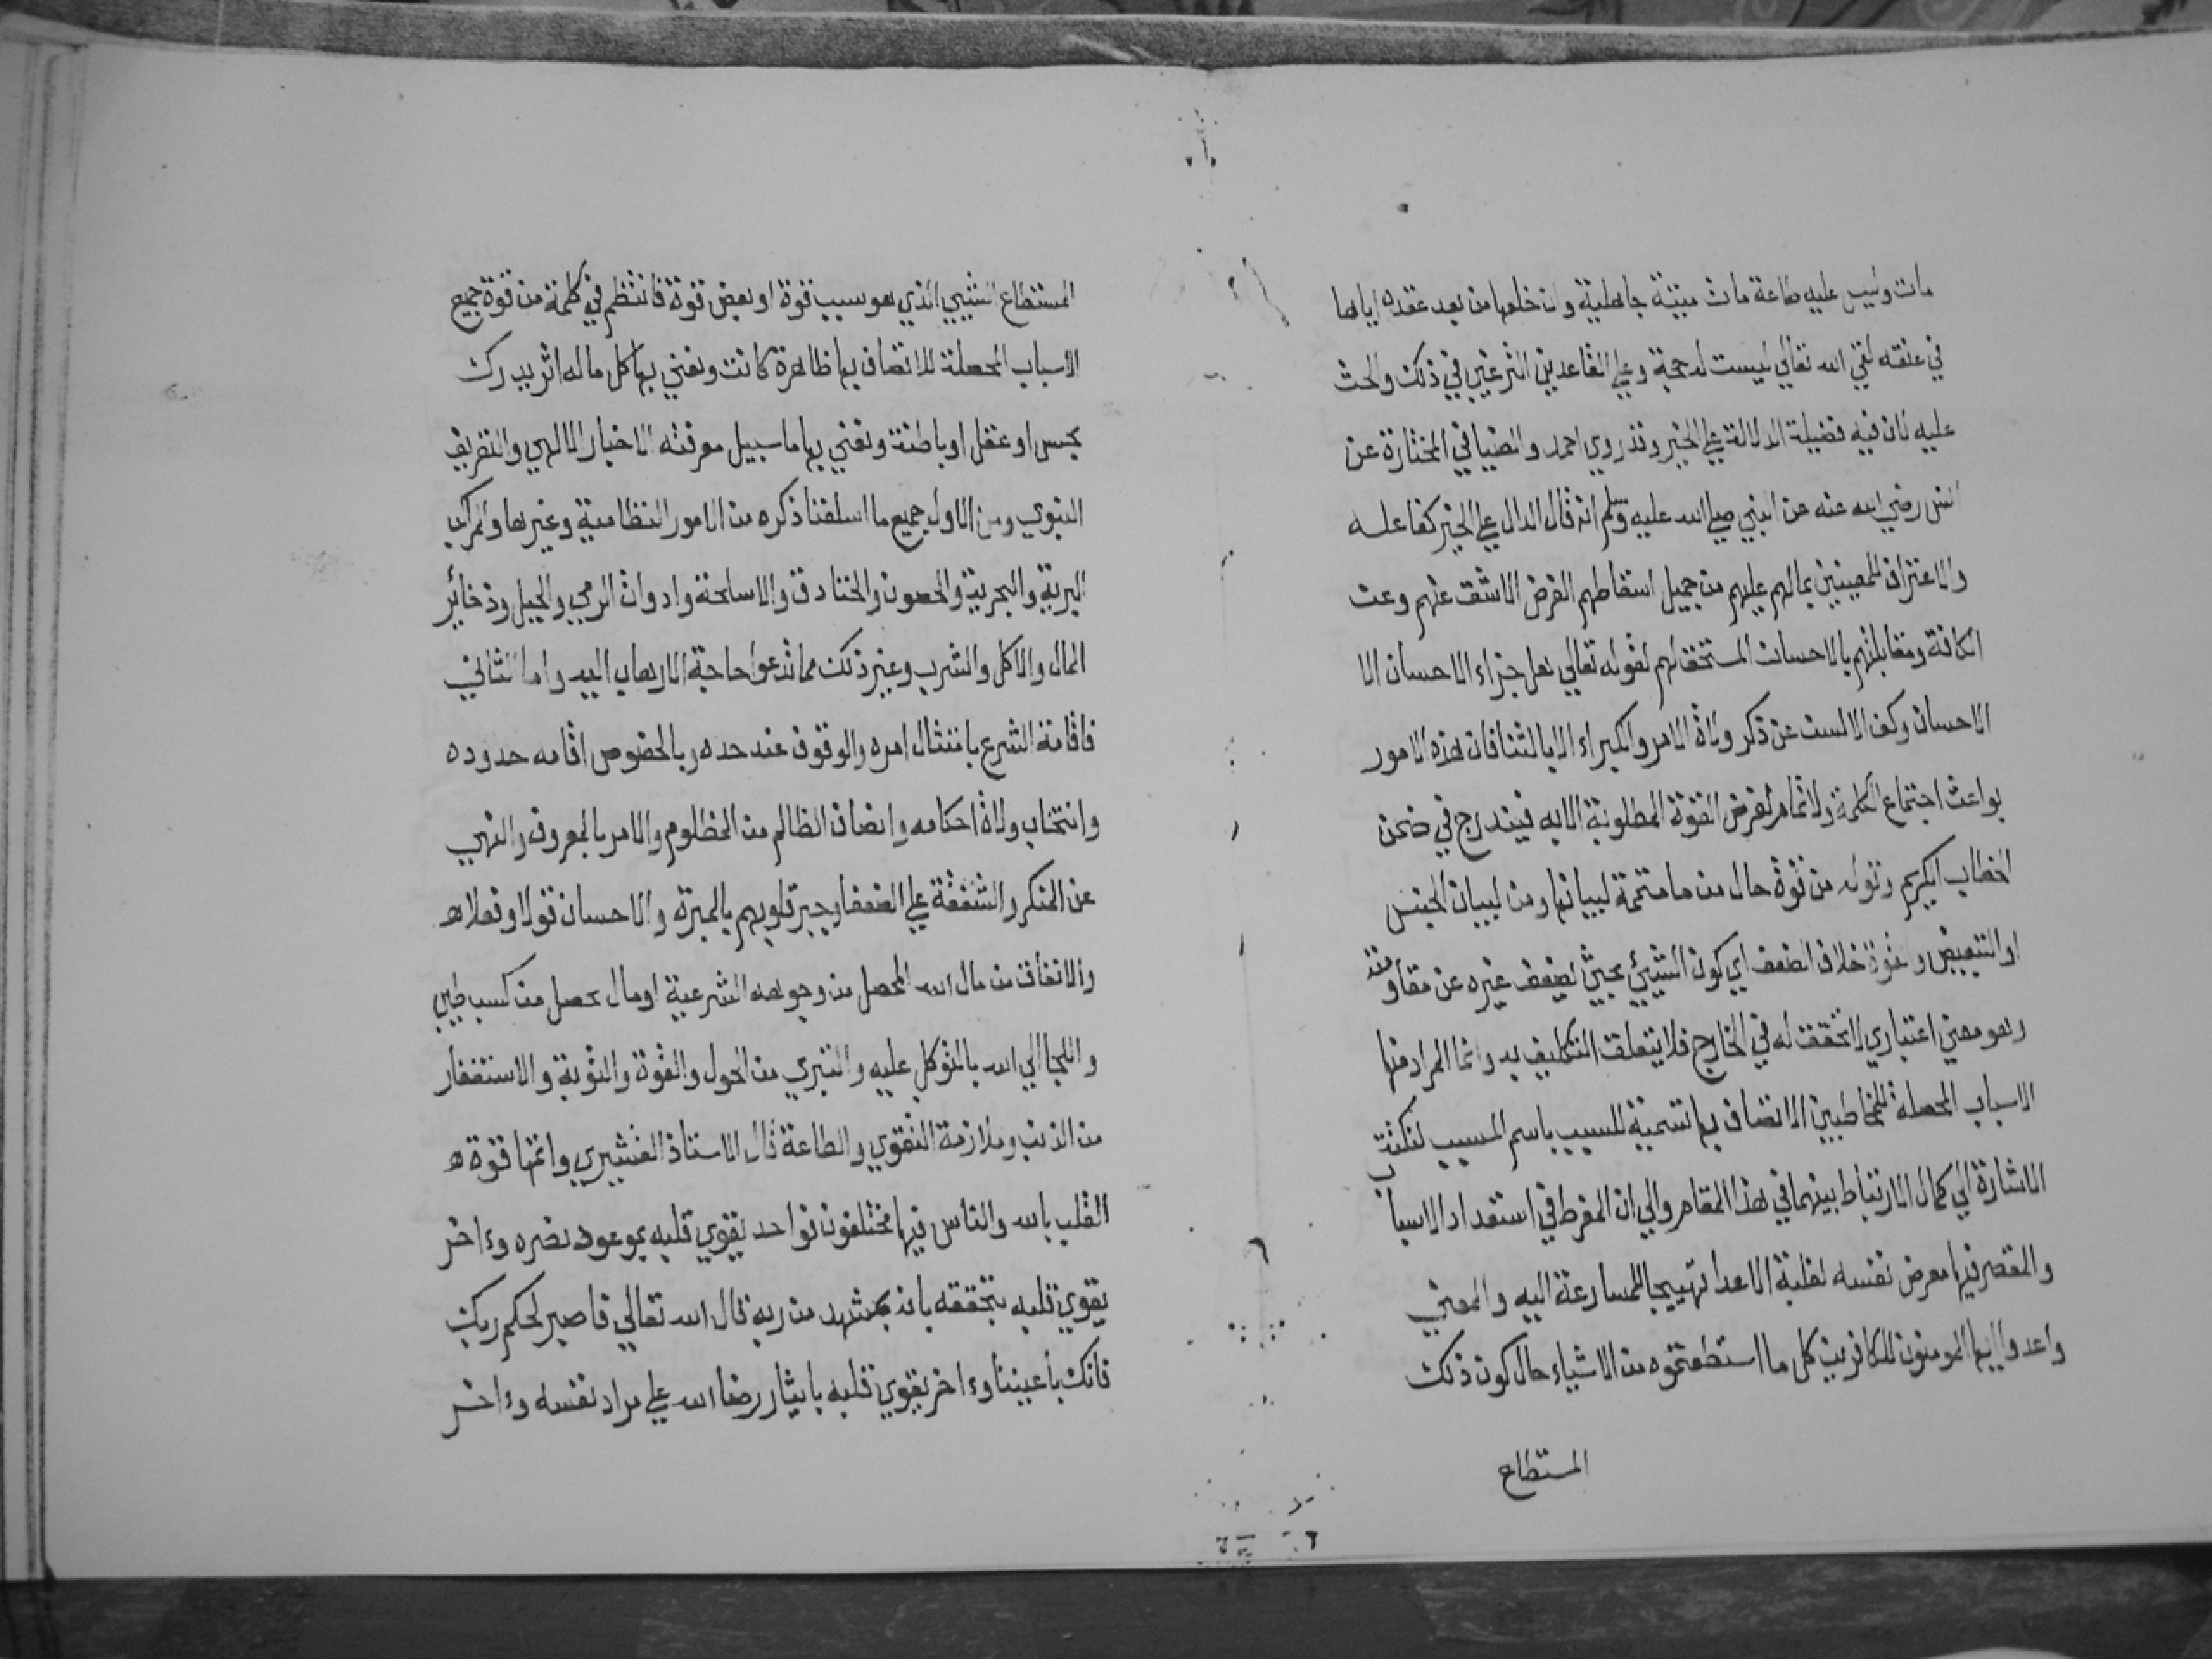 مات وليس عليه طاعة مات ميتة جاهلية وان خلعها من بعد عقده اياها
في عنقه لقي الله تعالي ليست له حجة وعلي القاعدين الترغيب في ذلك والحث
عليه لان فيه فضيلة الدلالة علي الخير وقد روي احمد والضيا في المختارة عن
انس رضي الله عنه عن النبي صلي الله عليه وسلم انه قال الدال علي الخير كفاعله
والاعتراف للمعينين بمالهم عليهم من جميل اسقاطهم الفرض الاشق عنهم وعن
الكافة ومقابلتهم بالاحسان المستحق لهم لقوله تعالي هل جزاء الاحسان الا
الاحسان وكف الالسن عن ذكر ولاة الامر والكبراء الا بالثنا فان هذه الامور
بواعث اجتماع الكلمة ولا تمام لغرض القوة المطلوبة الا به فيندرج في ضمن
الخطاب الكريم وقوله من قوة حال من ما متممة لبيانها ومن لبيان الجنس
او التبعيض والقوة خلاف الضعف اي كون الشيئ بحيث يضعف غيره عن مقاومته
وهو معني اعتباري لا تحقق له في الخارج فلا يتعلق التكليف به وانما المراد منها
الاسباب المحصلة للمخاطبين الاتصاف بها تسمية للسبب باسم المسبب لنكتة
الاشارة الي كمال الارتباط بينهما في هذا المقام والي ان المفرط في استعداد الاسباب
والمقصر فيها معرض نفسه لغلبة الاعدا تهييجا للمسارعة اليه والمعني
واعدوا ايها المومنون للكافرين كل ما استطعتموه من الاشياء حال كون ذلك
المستطاع
المستطاع الشيئ الذي هو سبب قوة او بعض قوة فانتظم في كلمة من قوة جميع
الاسباب المحصلة للاتصاف بها ظاهرة كانت ونعني بها كل ما له اثر يدرك
بحس او عقل او باطنة ونعني بها ما سبيل معرفته الاخبار الالهي والتعريف
النبوي ومن الاول جميع ما اسلفنا ذكره من الامور النظامية وغيرها والمراكب
البرية والبحرية والحصون والخنادق والاسلحة وادوات الرمي والخيل وذخائر
المال والاكل والشرب وغير ذلك مما تدعوا حاجة الارهاب اليه واما الثاني
فاقامة الشرع بامتثال امره والوقوف عند حده وبالخصوص اقامه حدوده
وانتخاب ولاة احكامه وانصاف الظالم من المظلوم والامر بالمعروف والنهي
عن المنكر والشفقة علي الضعفا وجبر قلوبهم بالمبرة والاحسان قولا وفعلا ه
والانفاق من مال الله المحصل من وجوهه الشرعية او مال حصل من كسب طيب
واللجا الي الله بالتوكل عليه والتبري من الحول والقوة والتوبة والاستغفار
من الذنب وملازمة التقوي والطاعة قال الاستاذ القشيري واتمها قوة ه
القلب بالله والناس فيها مختلفون فواحد يقوي قلبه بموعود نصره وءاخر
يقوي قلبه بتحققه بانه بمشهد من ربه قال الله تعالي فاصبر لحكم ربك
فانك بأعيننا وءاخر يقوي قلبه بايثار رضا الله علي مراد نفسه وءاخر